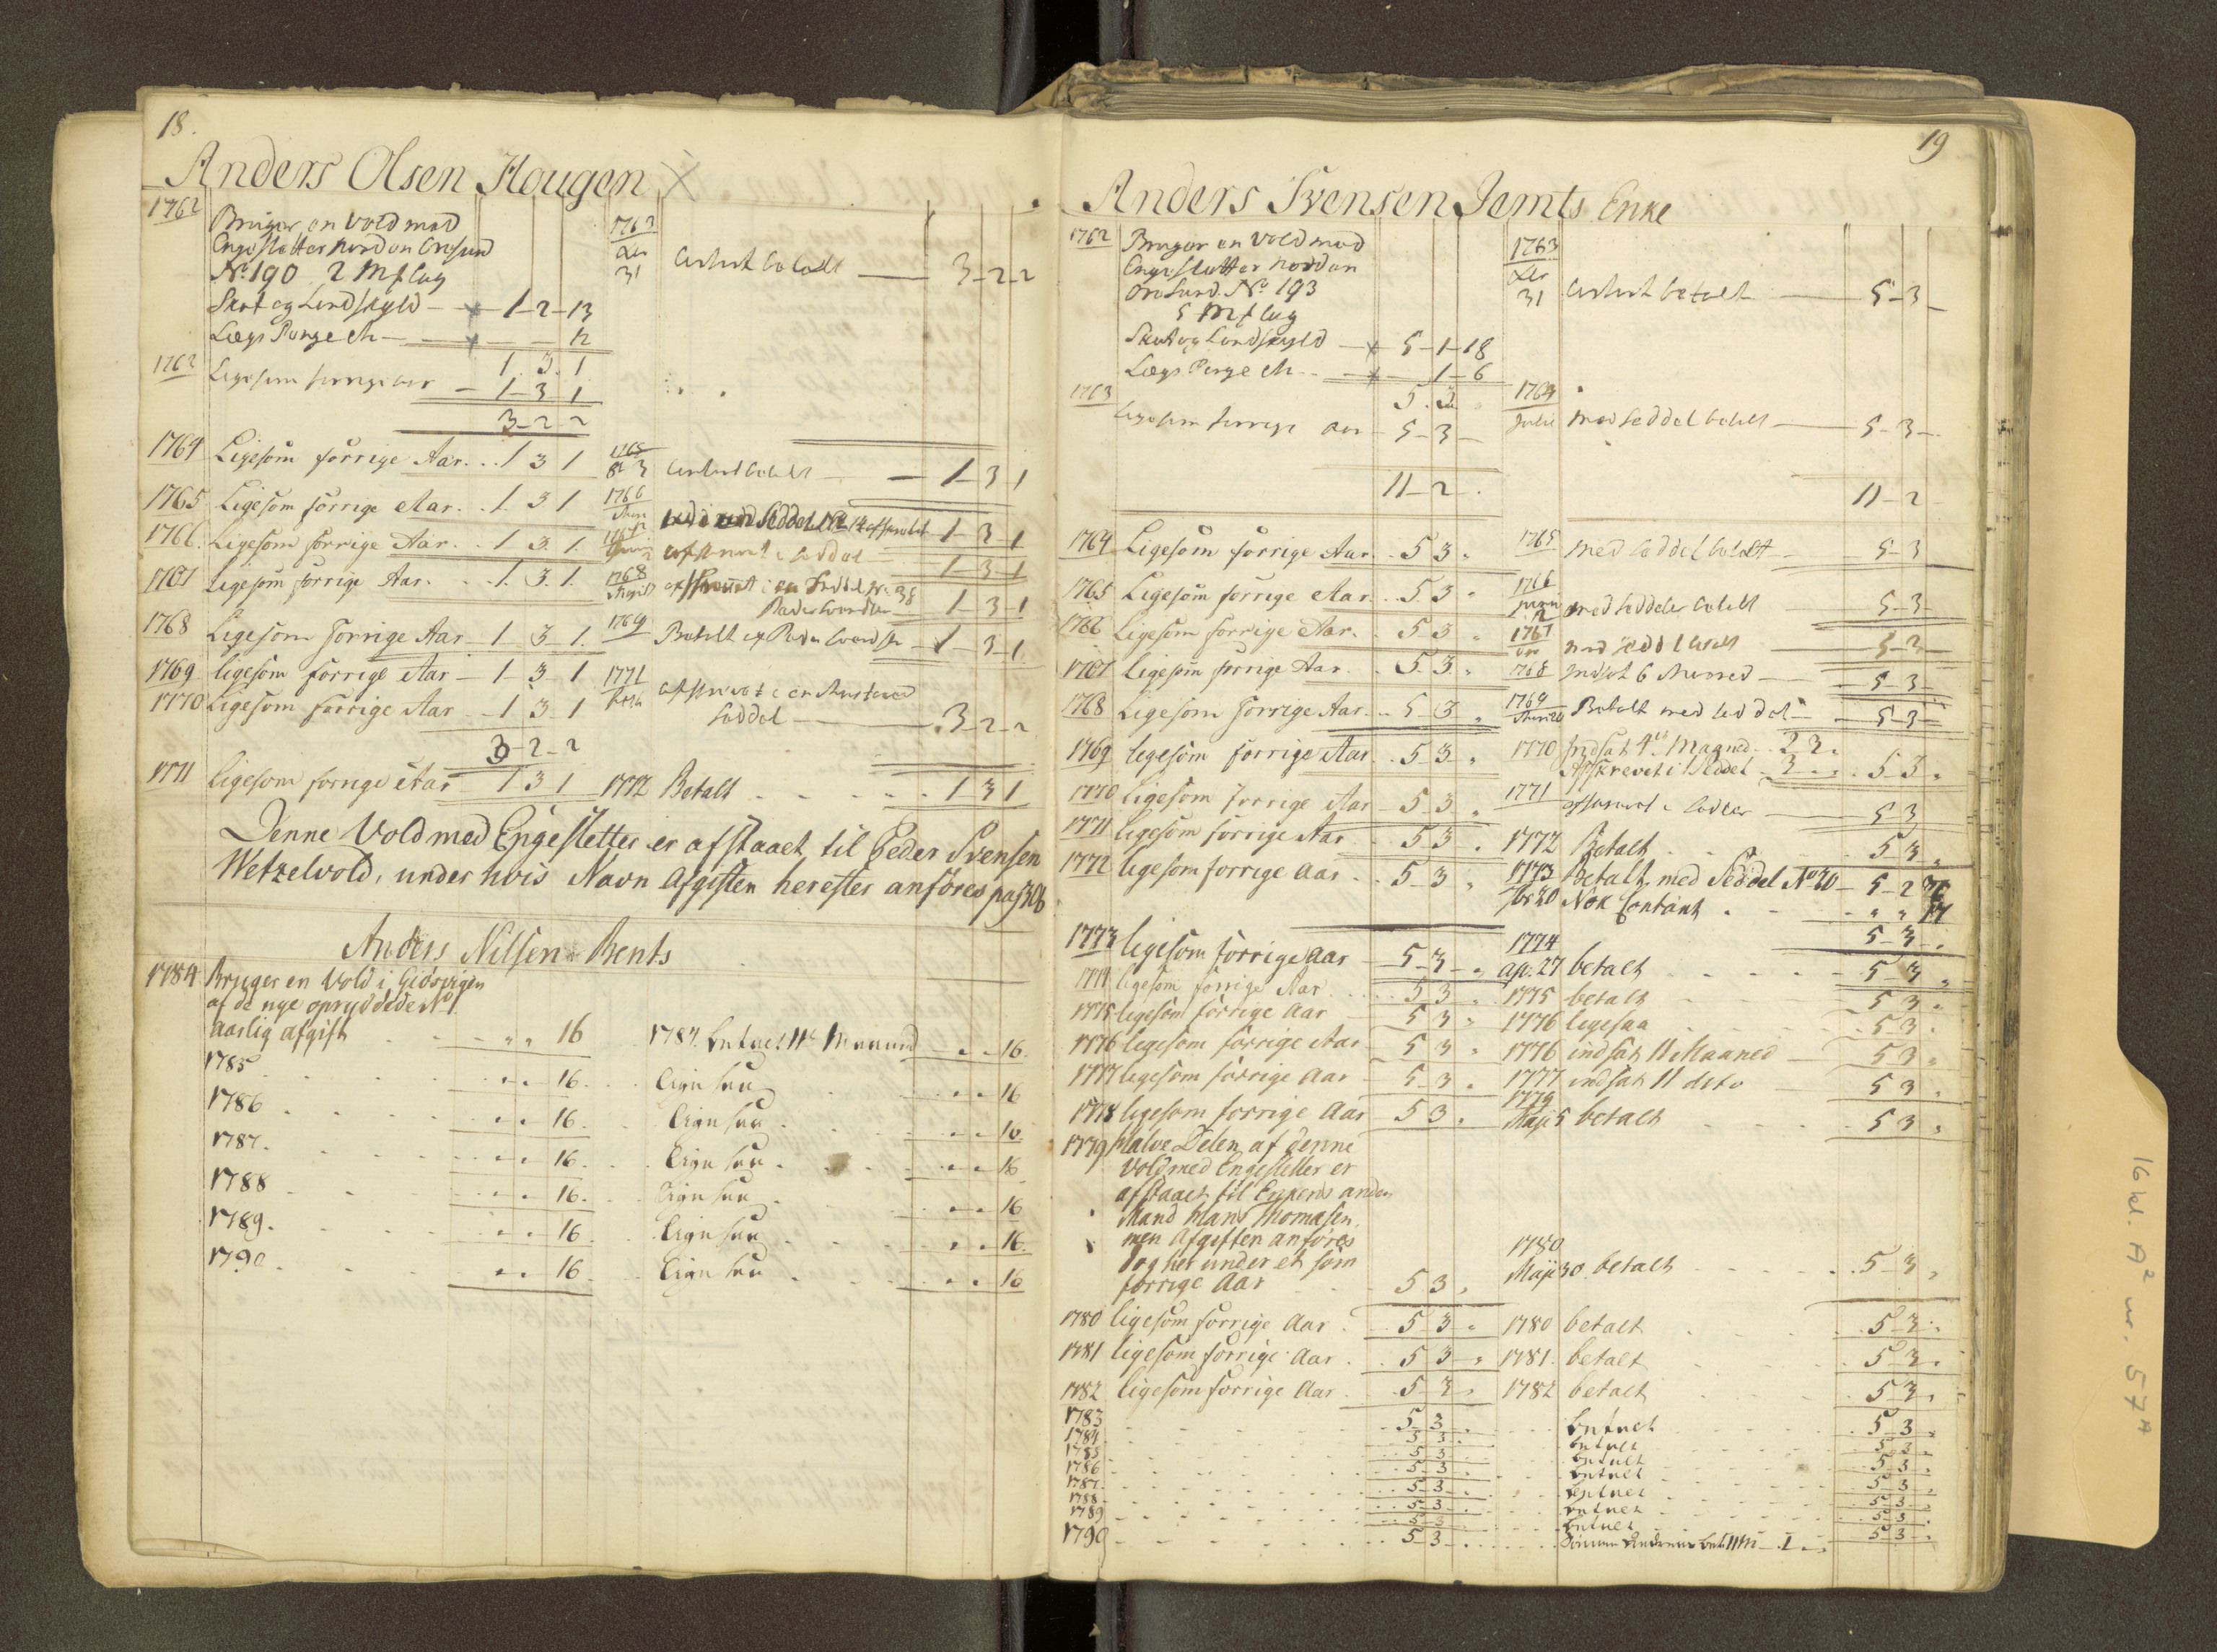 18.
Anders Olsen Hougen
1762 Bruger en Vold med
Engesletter norden Oresund
No. 190 2 M s lag
Skat og Landskyld 1-2-13
Lægs Penge 12
1.3.1
1762 Ligesom forrige aar 1-3-1
3-2-2
1764 Ligesom forrige Aar. 1 3 1
1765 Ligesom forrige Aar. 1. 3 1
1766. Ligesom forrige Aar. 1 3. 1.
1767 Ligesom forrige Aar. 1. 3. 1.
1768 Ligesom forrige Aar 1 3 1.
1769 ligesom forrige Aar 1 3 1
1770 Ligesom forrige Aar 1 3 1
3-2-2
1771 Ligesom forrige Aar 1 3 1
1763 31 betalt 3-2-2
1765 3 betalt 1-3-1
1766 Seddel afskrevet 1-3-1
afskrevet i Seddel 1-3-1
1768 afskrevet i en Seddel No. 38
1-3-1
1769 Betalt af Peder Svendsen 1-3-1
1771 afskrevet i en
Seddel 3-2-2
1772 Betalt 1 3 1
Denne Vold med Engesletter er afstaaet til Peder Svensen
Wetzelvold, under hvis Navn Afgiften herefter anføres pag 306
Anders Nilsen Bents
1784 Bruger en Vold i Gidsvigen
af de nye opryddede No 1
aarlig afgift " " 16 1784. betaet 11te Maaned " " 16.
1785 " " 16. Ligesaa " " 16
1786 " " 16. Ligesaa " " 16
1787. " " 16. Ligesaa " " 16
1788 " " 16. Ligesaa " " 16
1789. " " 16. Ligesaa " " 16.
1790 " " 16. Ligesaa " " 16
19
Anders Svensen Jemts Enke
1762 Bruger en Vold med
Engesletter norden
Oresund. No. 193
5 M s lag
Skat og Landskyld 5-1-18
Lægs Penge 1-6
5.3
1763 ligesom forrige Aar 5-3-
11-2.
1763 31 betalt 5-3-
1764 Julii med Seddel betalt 5-3-
11-2
1764 Ligesom forrige Aar. 5 3 " 1765 med Seddel betalt 5-3
1765 Ligesom forrige Aar. 5. 3 " 1766 Junii med Seddel betalt 5-3-
1766 Ligesom forrige Aar. 5 3 " 1767 med Seddel betalt 5-3-
1767 Ligesom forrige Aar. 5. 3 " 1768 Indsat 6 Maaned 5-3-
1768 Ligesom forrige Aar. 5 3 " 1769 Betalt med Seddel 5-3-
1769 ligesom forrige Aar. 5 3 " 1770 Indsat 4de Maaned 2 3 "
Afskrevet i Seddel 3 " " 5 3 "
1770 ligesom forrige Aar 5 3 " 1771 afskrevet i Seddel 5 3
1771 ligesom forrige Aar 5 3 " 1772 Betalt 5 3 "
1772 ligesom forrige Aar. 5-3 " 1773 betalt med Seddel No 20 5-2
Nok Contant " " 17
5-3 "
1773 ligesom forrige Aar 5-3 " 1774 ap. 27 betalt 5 3 "
1774 ligesom forrige Aar 5 3 " 1775 betalt 5 3 "
1775 ligesom forrige Aar 5 3 " 1776 ligesaa 5 3 "
1776 ligesom forrige Aar 5 3 " 1776 indsat 11 Maaned 5 3 "
1777 ligesom forrige Aar 5 3 " 1777 indsat 11 dito 5 3 "
1778 ligesom forrige Aar 5 3 " 1779 Maji 5 betalt 5 3 "
1779 Halve Delen af denne
Vold med Engesletter er
afstaaet til Enkens anden
Mand Hans Thomasen,
men Afgiften anføres
dog her under et som
forrige Aar 5 3 " 1780 Maji 30. betalt 5 3 "
1780 ligesom forrige Aar. 5 3 " 1780 betalt 5 3 "
1781 ligesom forrige Aar. 5 3 " 1781. betalt 5 3 "
1782 ligesom forrige Aar. 5 3 " 1782 betalt 5 3 "
1783 5 3 " betaet 5 3 "
1784 5 3 " betaet 5 3 "
1785 5 3 " betaet 5 3 "
1786 5 3 " betaet 5 3 "
1787 5 3 " betaet 5 3 "
1788 5 3 " betaet 5 3 "
1789 5 3 " betaet 5 3 "
1790 5 3 "
16 kl. A² nr. 57A